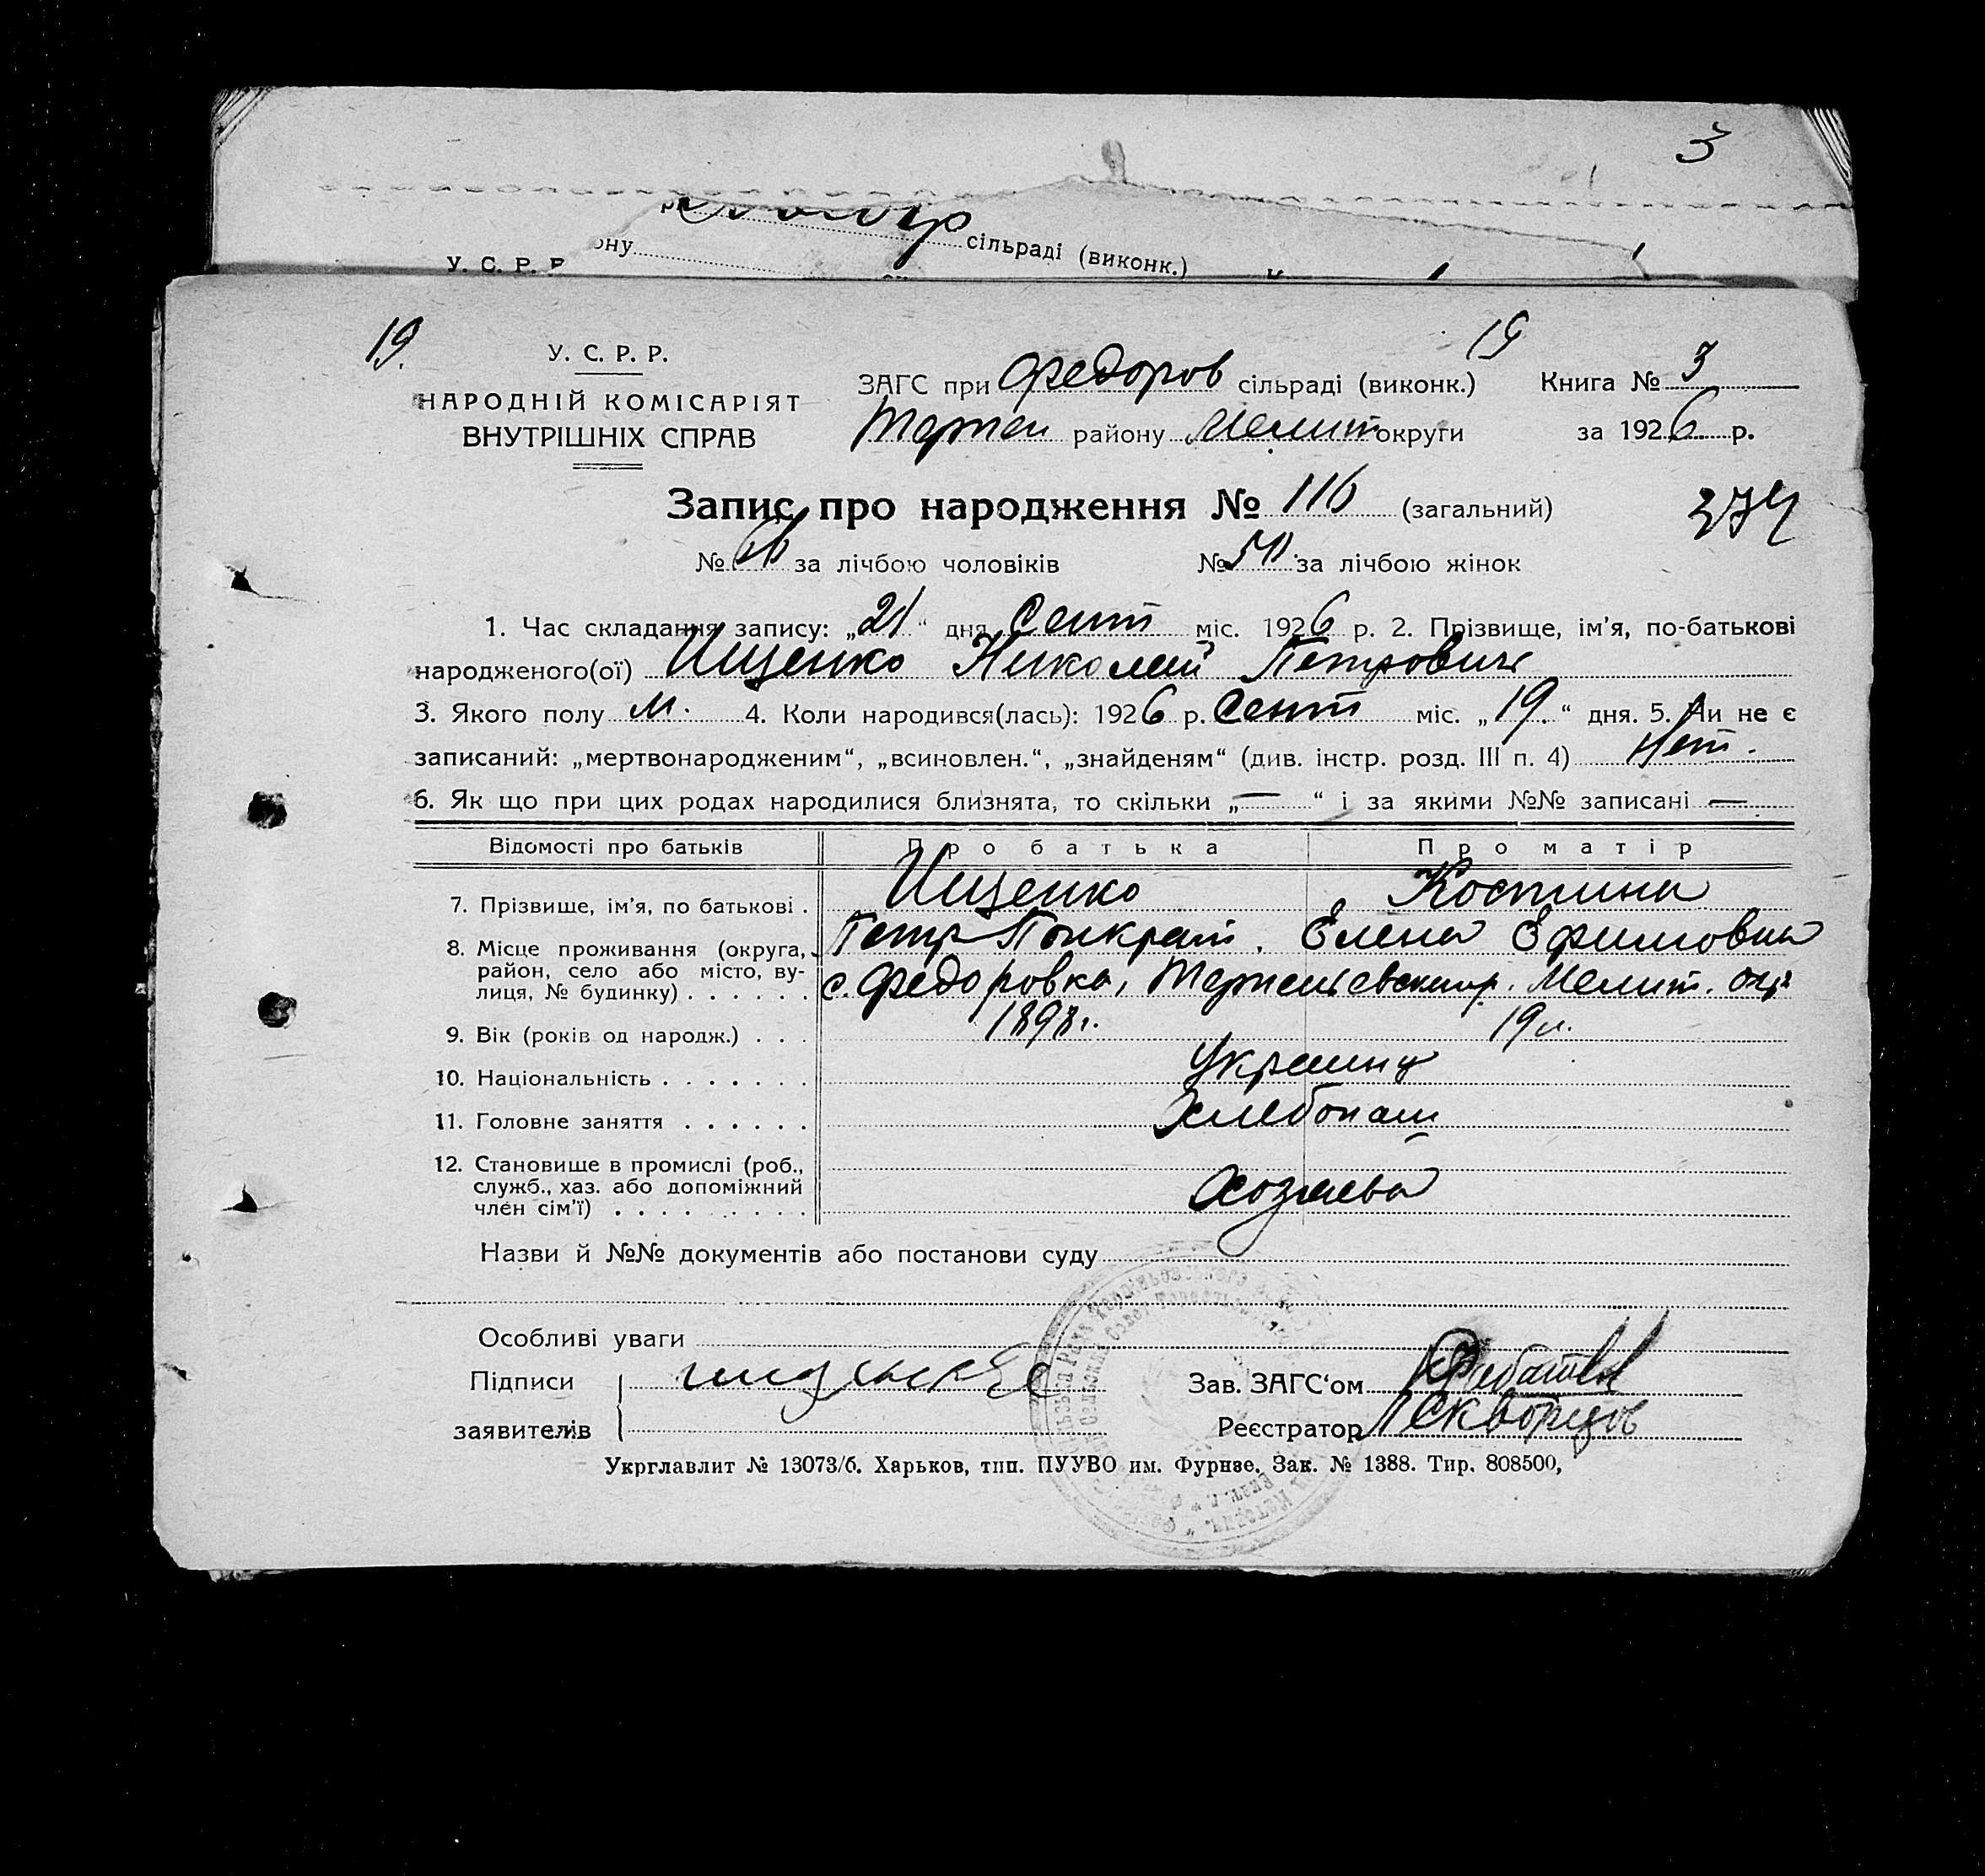 3
сільраді (виконк.)
ону
У. С. Р. Р
19.
19
У. С. Р. Р.
НАРОДНІЙ КОМІСАРІЯТ
ВНУТРІШНІХ СПРАВ
ЗАГС при Федоров сільраді (виконк.) Книга № 3
району Мелит округи за 1926 р.
Запис про народження № 116 (загальний)
374
№ за лічбою чоловіків № 50 за лічбою жінок
1. Час складання запису: „21“ дня Сент міс. 1926 р. 2. Прізвище, ім’я, по-батькові
народженого(ої) Ищенко Николай Петрович
3. Якого полу м. 4. Коли народився(лась): 1926 р. Сент міс. „19.“ дня. 5. Чи не є
записаний: „мертвонародженим“, „всиновлен.“, „знайденям“ (див. інстр. розд. III п. 4) Нет.
6. Як що при цих родах народилися близнята, то скільки „—“ і за якими №№ записані —
Відомості про батьків Про батька Про матір
7. Прізвище, ім’я, по батькові . Ищенко Костина
Петр Понкрат. Елена Ефимовна
8. Місце проживання (округа,
район, село або місто, ву-
лиця, № будинку) . . . . . . с. Федоровка, Мелит. окр
9. Вік (років од народж.) . . . 1898г. 19 л.
10. Національність . . . . . . . Украинц
11. Головне заняття . . . . . . Хлебопаш
12. Становище в промислі (роб.,
служб., хаз. або допоміжний
член сім’ї) . . . . . . . . . Хозяева
Назви й №№ документів або постанови суду
Особливі уваги
Підписи
заявителів
Ищенко
Зав. ЗАГС‘ом
Реєстратор Скворцов
Укрглавлит № 13073/б. Харьков, тип. ПУУВО им. Фурнзе. Зак. № 1388. Тир. 808500,